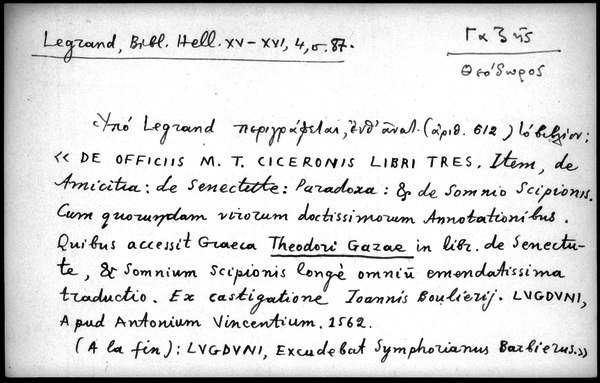 Legrand, Bibl. Hell. XV–XVI, 4, σ. 87.
Γαζῆς
Θεόδωρος
Ὑπό Legrand περιγράφεται, ἐνθ' ἀνωτ. (ἀριθ. 612) τό βιβλίον:
« DE OFFICIIS M. T. CICERONIS LIBRI TRES. Item, de
Amicitia: de Senectute: Paradoxa: & de Somnio Scipionis.
Cum quorundam virorum doctissimorum Annotationibus.
Quibus accessit Graeca Theodori Gazae in libr. de Senectu-
te, & Somnium Scipionis longè omniū emendatissima
traductio. Ex castigatione Ioannis Boulierij. LVGDVNI,
Apud Antonium Vincentium. 1562.
(A la fin): LVGDVNI, Excudebat Symphorianus Barbierus.»